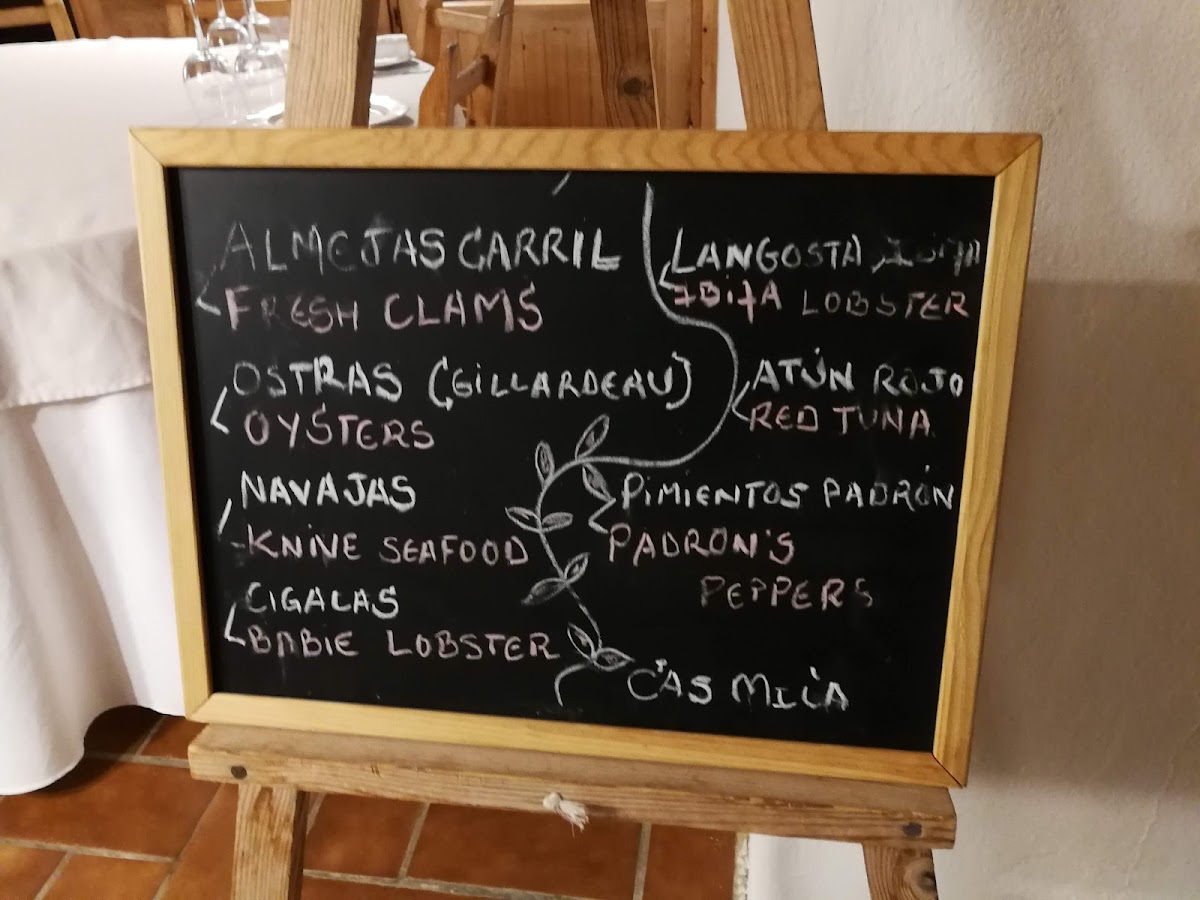 ALMEJAS CARRIL
FRESH CLAMS
OSTRAS (GILLARDEAU)
OYSTERS
NAVAJAS
KNIVE SEAFOOD
CIGALAS
BABIE LOBSTER
LANGOSTA
IBIZA LOBSTER
ATÚN ROJO
RED TUNA
PIMIENTOS PADRÓN
PADRON'S
PEPPERS
CAS MILA